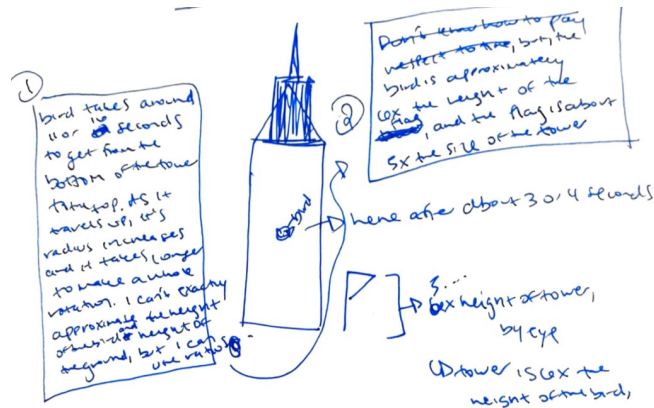 ①
bird takes around
11 or 10 seconds
to get from the
bottom of the tower
to the top, as it
travels up, it's
radius increases
and it takes longer
to make a whole
rotation. I can't exactly
approximate the height
of the bird and height of
the ground, but I can
use ratios
bird
②
Don't know how to pay
respect to, but, the
bird is approximately
the height of the
flag, and the flag is about
5x the size of the tower
here after about 3 or 4 seconds
5....
6x height of tower,
by eye
① tower is 6x the
height of the bird,